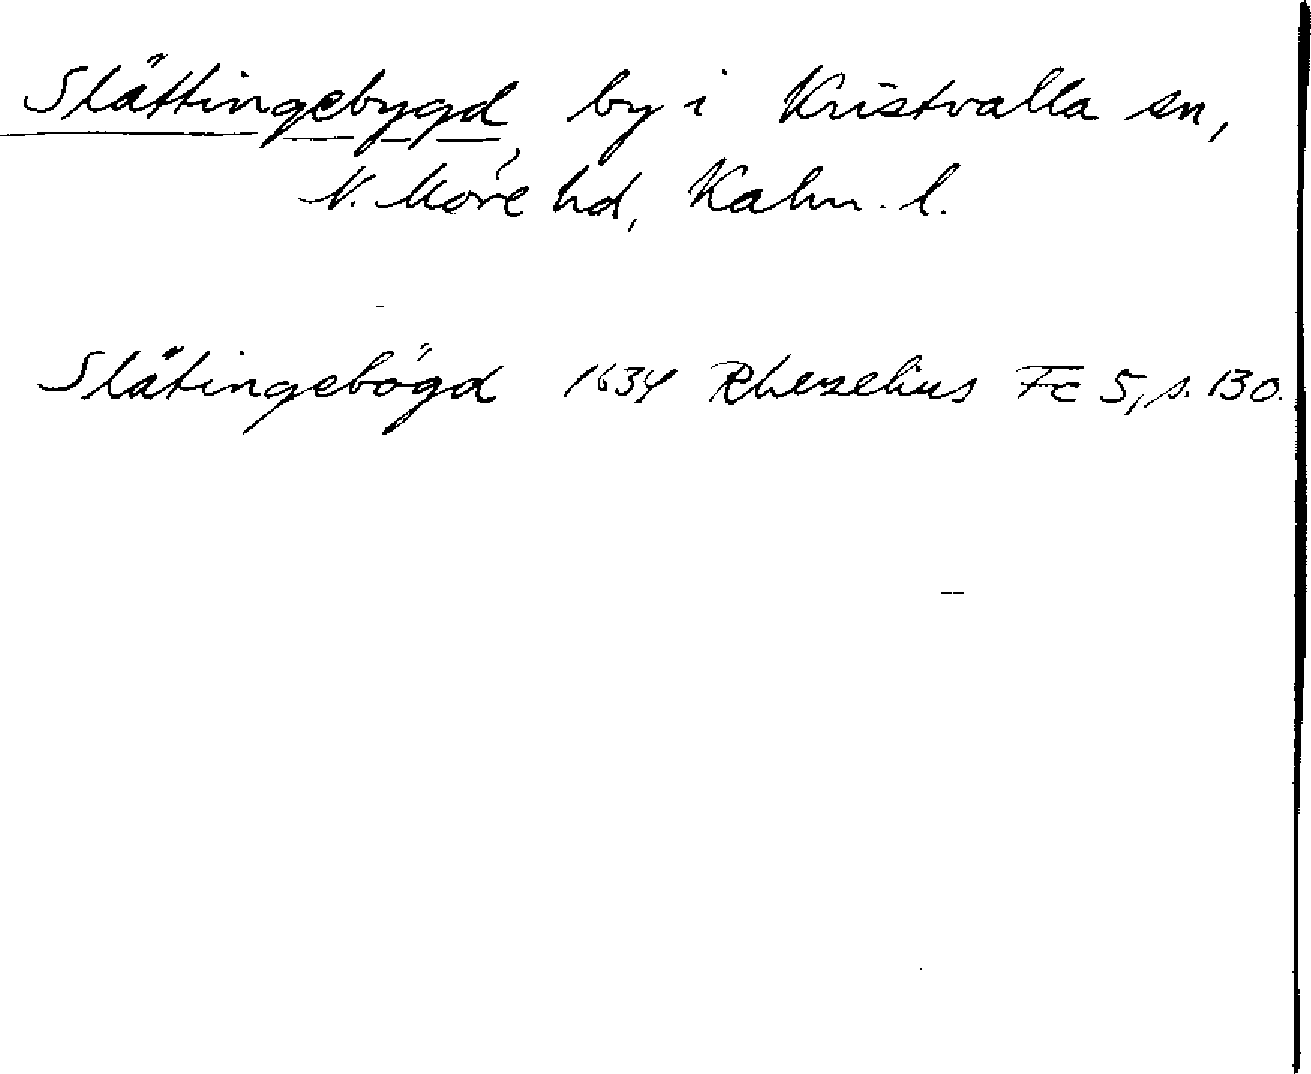 Slättingebygd, by i Kristvalla sn,
N. Möre hd, Kalm. l.
Slätingebögd 1634 Rhezelius Fc 5, s. 130.